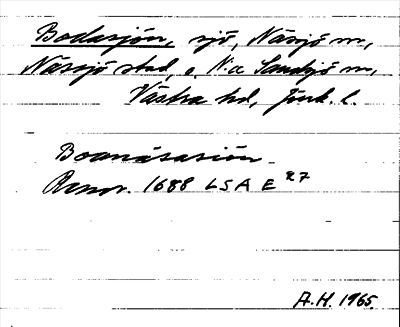 Bodasjön, sjö, Nässjö sn,
Nässjö stad, o N:a Sandsjö sn,
Västra hd, Jönk. l.
Boanäsasiön
Renov. 1688 LSA E 27
A.H. 1965.